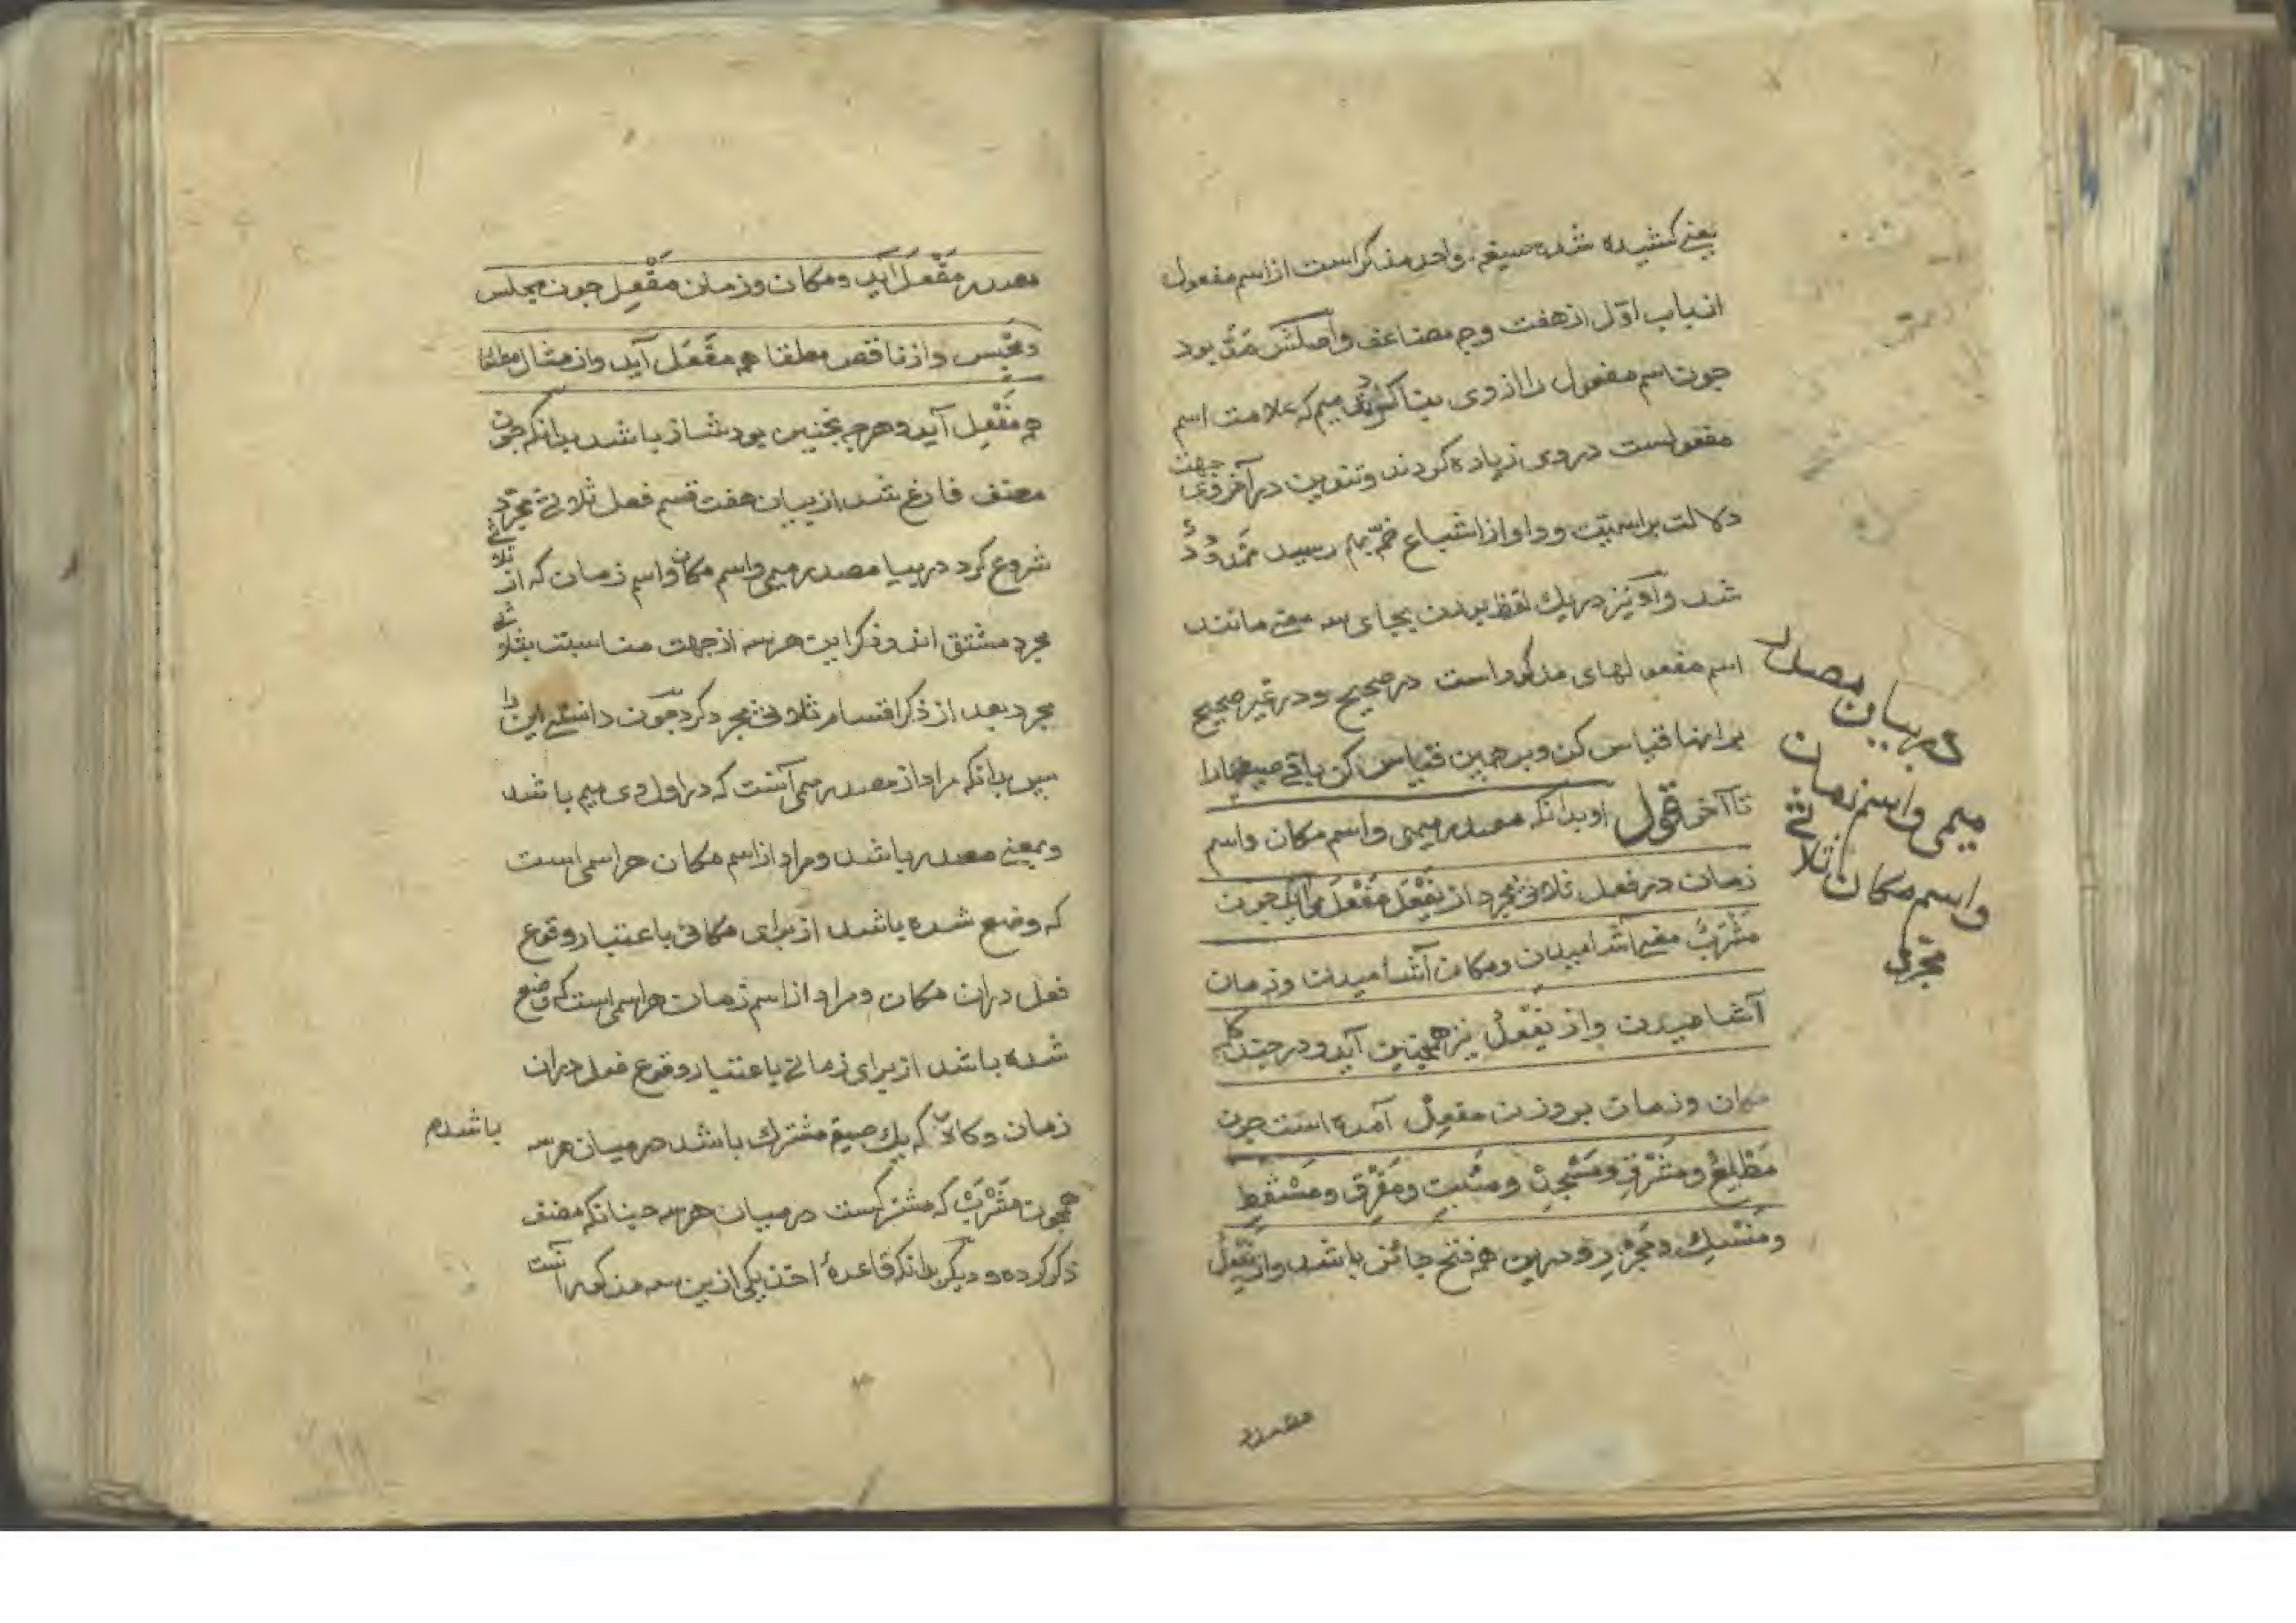 یعنی کشیده شده صیغه واحد مذکر است از اسم مفعول
از باب اوّل از هفت وجه مضاعف و اصلش مَدّ بود
چون اسم مفعول را از وی بنا کردند میم که علامت اسم
مفعولست در وی زیاده کردند و تنوین در آخر وی جهت
دلالت بر اسمیّت و واو از اشباع ضمّ بهم رسید مَمْدُوْدٌ
شد و او نیز در یک لفظ بودن بجای سه معنی مانند
اسم مفعولهای مذکور است در صحیح و در غیر صحیح
بر اینها قیاس کن و بر همین قیاس کن باقی صیغها را
تا آخر قول او بدانکه مصدر میمی و اسم مکان و اسم
زمان در فعل ثلاثی مجرد از یَفْعَل مَفْعَل می‌آید چون
مَشْرَبٌ معنی آشامیدن و مکان آشامیدن و زمان
آشامیدن و از یَفْعُلُ نیز همچنین آید و در چند کلمه
مکان و زمان بر وزن مَفعِلْ آمده است چون
مَطْلِعْ و مَشْرِقْ و مَسْجِدْ و مَنْبِت و مَفْرِق و مَسْقِط
و مَنْسِكْ و مَجْزِر و درین همه فتح جائز باشد و از یَفْعِلُ
در بیان مصدر
میمی و اسم زمان
و اسم مکان ثلاثی
مجرد
مصدر
مصدر مَفْعَل آید و مکان و زمان مَفْعِل چون مجلس
و از ناقص مطلقا همه مَفْعَل آید و از مثال مطلقا
همه مَفْعِل آید و هرچه نچنین بود شاذ باشد بدانکه چون
مصنف فارغ شد از بیان هفت قسم فعل ثلاثی مجرّد
شروع کرد در بیان مصدر میمی و اسم مکان و اسم زمان که از ثلاثی
مجرد مشتق اند و ذکر این هر سه از جهت مناسبت بثلاثی
مجرد بعد از ذکر اقسام ثلاثی مجرد کرد چون دانستی این را
پس بدانکه مراد از مصدر میمی آنست که در اول وی میم باشد
و بمعنی مصدر باشد و مراد از اسم مکان هر اسمی است
که وضع شده باشد از برای مکانی باعتبار وقوع
فعل در ان مکان و مراد از اسم زمان هر اسمی است که وضع
شده باشد از برای زمانی باعتبار وقوع فعل در ان
زمان و که یک صیغه مشترک باشد در میان هر سه
باشد
همچون مَشْرَبْ که مشترکست در میان هر سه چنانکه مصنف
ذکر کرده و دیگر بدانکه قاعدهٔ اخذ یکی ازین سه مذکور آنست